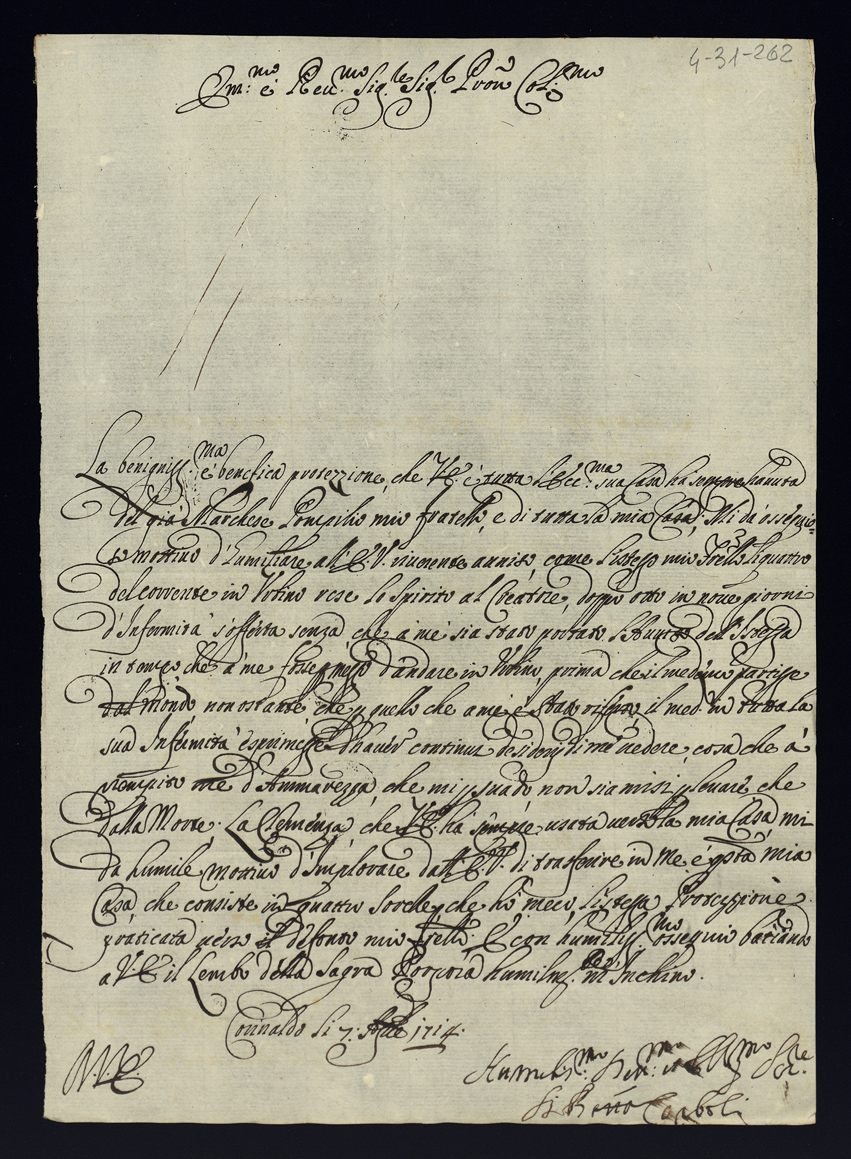 4-31-262
Em:mo é Reu.mo Sig.re Sig.r Pron Col:mo
La benigniss.ma é benefica protezzione, che V.E. é tutta l'Ecc:ma sua Casa ha sempre hauuta
del già Marchese Pompilio mio fratello, e di tutta la mia Casa, Mi dà ossequio=
so mottiuo d'humiliare all'E.V. riuerente auuiso, come l'istesso mio frello li quattro
del corrente in Vrbino rese lo spirito al Creatore, doppo otto in noue giorni
d'Infermità sofferta senza che à me sia stato portato auuiso dell'Istessa
in tempo che à me fosse d'andare in Vrbino, prima che il medmo partisse
dal Mondo non ostante che quello che à me é stato riferito, il med. in tutta la
sua Infirmità esprimesse d'hauer continui desiderij di me uedere, cosa che à
riempito me d'Ammarezza, che mi psuado non siami si p leuare che
dalla Morte. La Clemenza, che V.E. hà sempre usata uerso la mia Casa mi
da humile mottiuo d'Implorare dall'E.V. di trasferire in Me é qsta mia
Casa, che consiste in quattro sorelle, che hò meco l'istessa Protezzione
praticata uerso il defonto mio frello. E con humiliss.mo ossequio baciando
a V.E. il Lembo della Sagra Porpora humilmte m'Inchino.
Corinaldo li 7: Aple 1714.
V.E.
Humilis:mo Deu:mo et Obblmo Sre